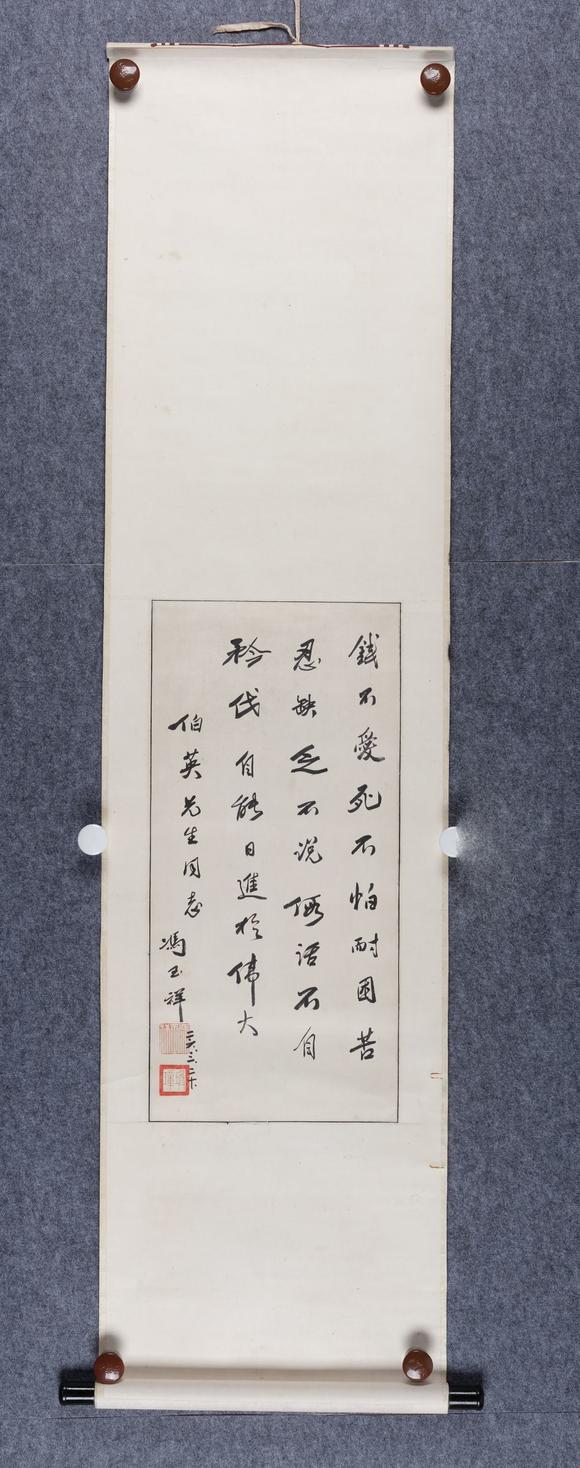 錢不愛死不怕耐困苦
忍缺乏不说假话不自
矜伐自能日進於偉大
伯英先生同志
馮玉祥
二六、三、二十、